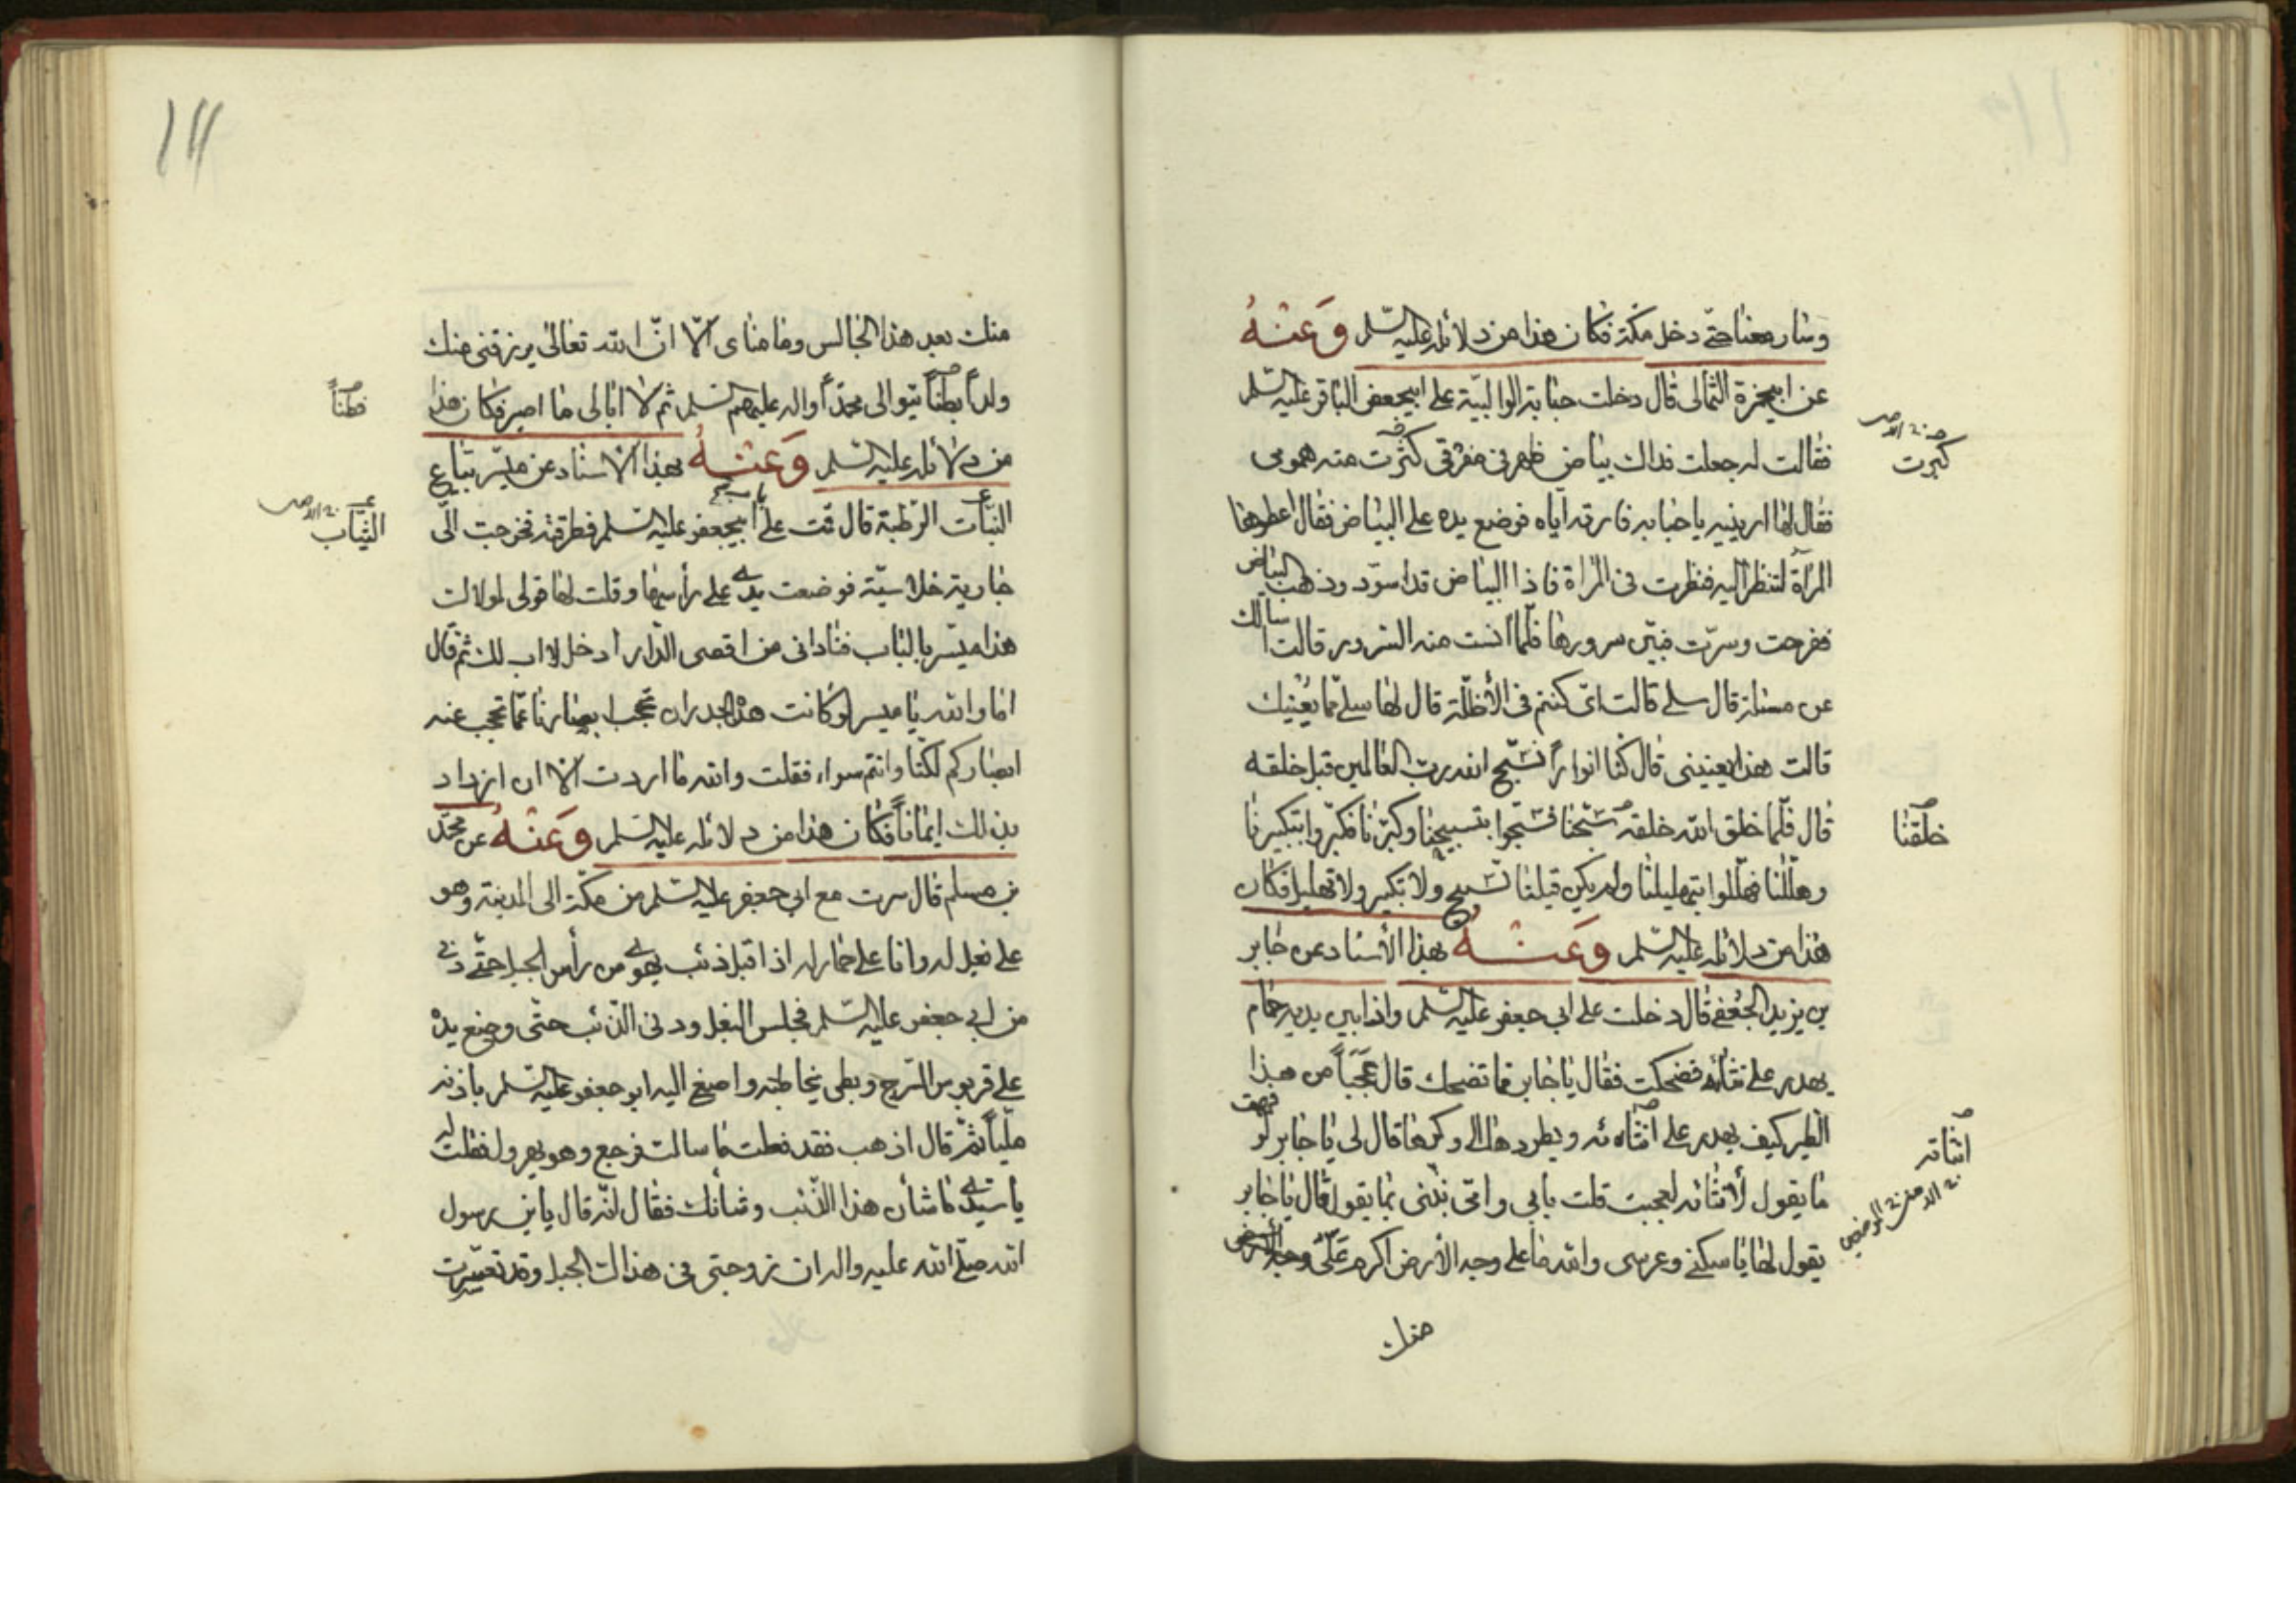 وسار معنا حتى دخل مكة فكان هذا من دلائله عليه السلم وَعَنْهُ
عن ابيحمزة الثمالى قال دخلت حبابة الوالبية على ابيجعفر الباقر عليه السلم
فقالت له جعلت فداك بياض ظهر فى مفرقى كثرت منه همومى
كبرت
فقال لها ارينيه يا حبابه فارته اياه فوضع يده على البياض فقال اعطوها
المرآة لتنظر اليه فنظرت فى المرآة فاذا البياض قد اسود وذهب البياض
ففرحت وسرت فبين سرورها فلما انست منه السرور قالت اسالك
عن مسئلة قال سلى قالت اى كنتم فى الأظلة قال لها سلى عما يعنيك
قالت هذا يعنينى قال كنا انواراً نسبح الله رب العالمين قبل خلقه
قال فلما خلق الله خلقه سبحنا فسبحوا بتسبيحنا وكبرنا فكبروا بتكبيرنا
خلقنا
وهللنا فهللوا بتهليلنا ولم يكن قبلنا تسبيح ولا تكبير ولا تهليل فكان
هذا من دلائله عليه السلم وَعَنْهُ بهذا الأسناد عن جابر
بن يزيد الجعفى قال دخلت على ابى جعفر عليه السلم واذا بين يديه حمام
يهدر على نثاه فضحكت فقال يا جابر مما تضحك قال عَجَباً من هذا
الطير كيف يهدر على انثاه ئه ويطردها الى وكرها قال لى يا جابر لو فهمت
انثاته
ما يقول لأنثائه لعجبت قلت بابى وامى نبئنى بما يقول قال يا جابر
يقول لها يا سكنى وعرسى والله ما على وجه الأرض اكرم عَلَىّ وجه الأرض
منك
١١١
منك بعد هذا الجالس وما مناى الّا انّ الله تعالى يرزقنى منك
ولداً بطناً يتوالى محمداً واله عليهم السلم ثم لا ابالى ما اصير فكان هذا
فطناً
من دلائله عليه السلم وَعَنْهُ بهذا الاسناد عن ميسر بتاع
النبات الرطبة قال قمت على باب ابيجعفر عليه السلم فطرقته فخرجت الى
الثياب
جارية خلاسية فوضعت يدى على رأسها وقلت لها قولى لمولاك
هذا ميسر بالباب فنادانى من اقصى الدار ادخل لا اب لك ثم قال
اما والله يا ميسر لو كانت هذه الجدران تحجب ابصارنا عما تحجب عنه
ابصاركم لكنا وانتم سواء فقلت والله ما اردت الا ان ازداد
بذلك ايماناً فكان هذا من دلائله عليه السلم وَعَنْهُ عن محمد
بن مسلم قال سرت مع ابى جعفر عليه السلم من مكة الى المدينة وهو
على بغل له وانا على حمار له اذ اقبل ذئب يهوى من رأس الجبل حتى دنى
من ابى جعفر عليه السلم فجلس البغل ودنى الذئب حتى وضع يده
على قربوس السرج وبطى يخاطبه واصغى اليه ابو جعفر عليه السلم باذنه
ملياً ثم قال اذهب فقد فعلت ما سالت فرجع وهو يهرول فقلت له
يا سيدى ما شأن هذا الذئب وشأنك فقال انّه قال يابن رسول
الله صلى الله عليه واله ان زوجتى فى هذا الجبل وقد تعسرت